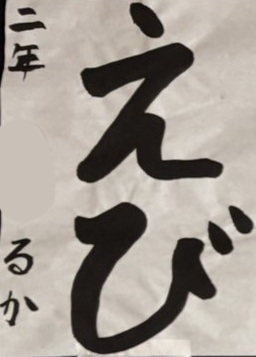 えび
二年
るか